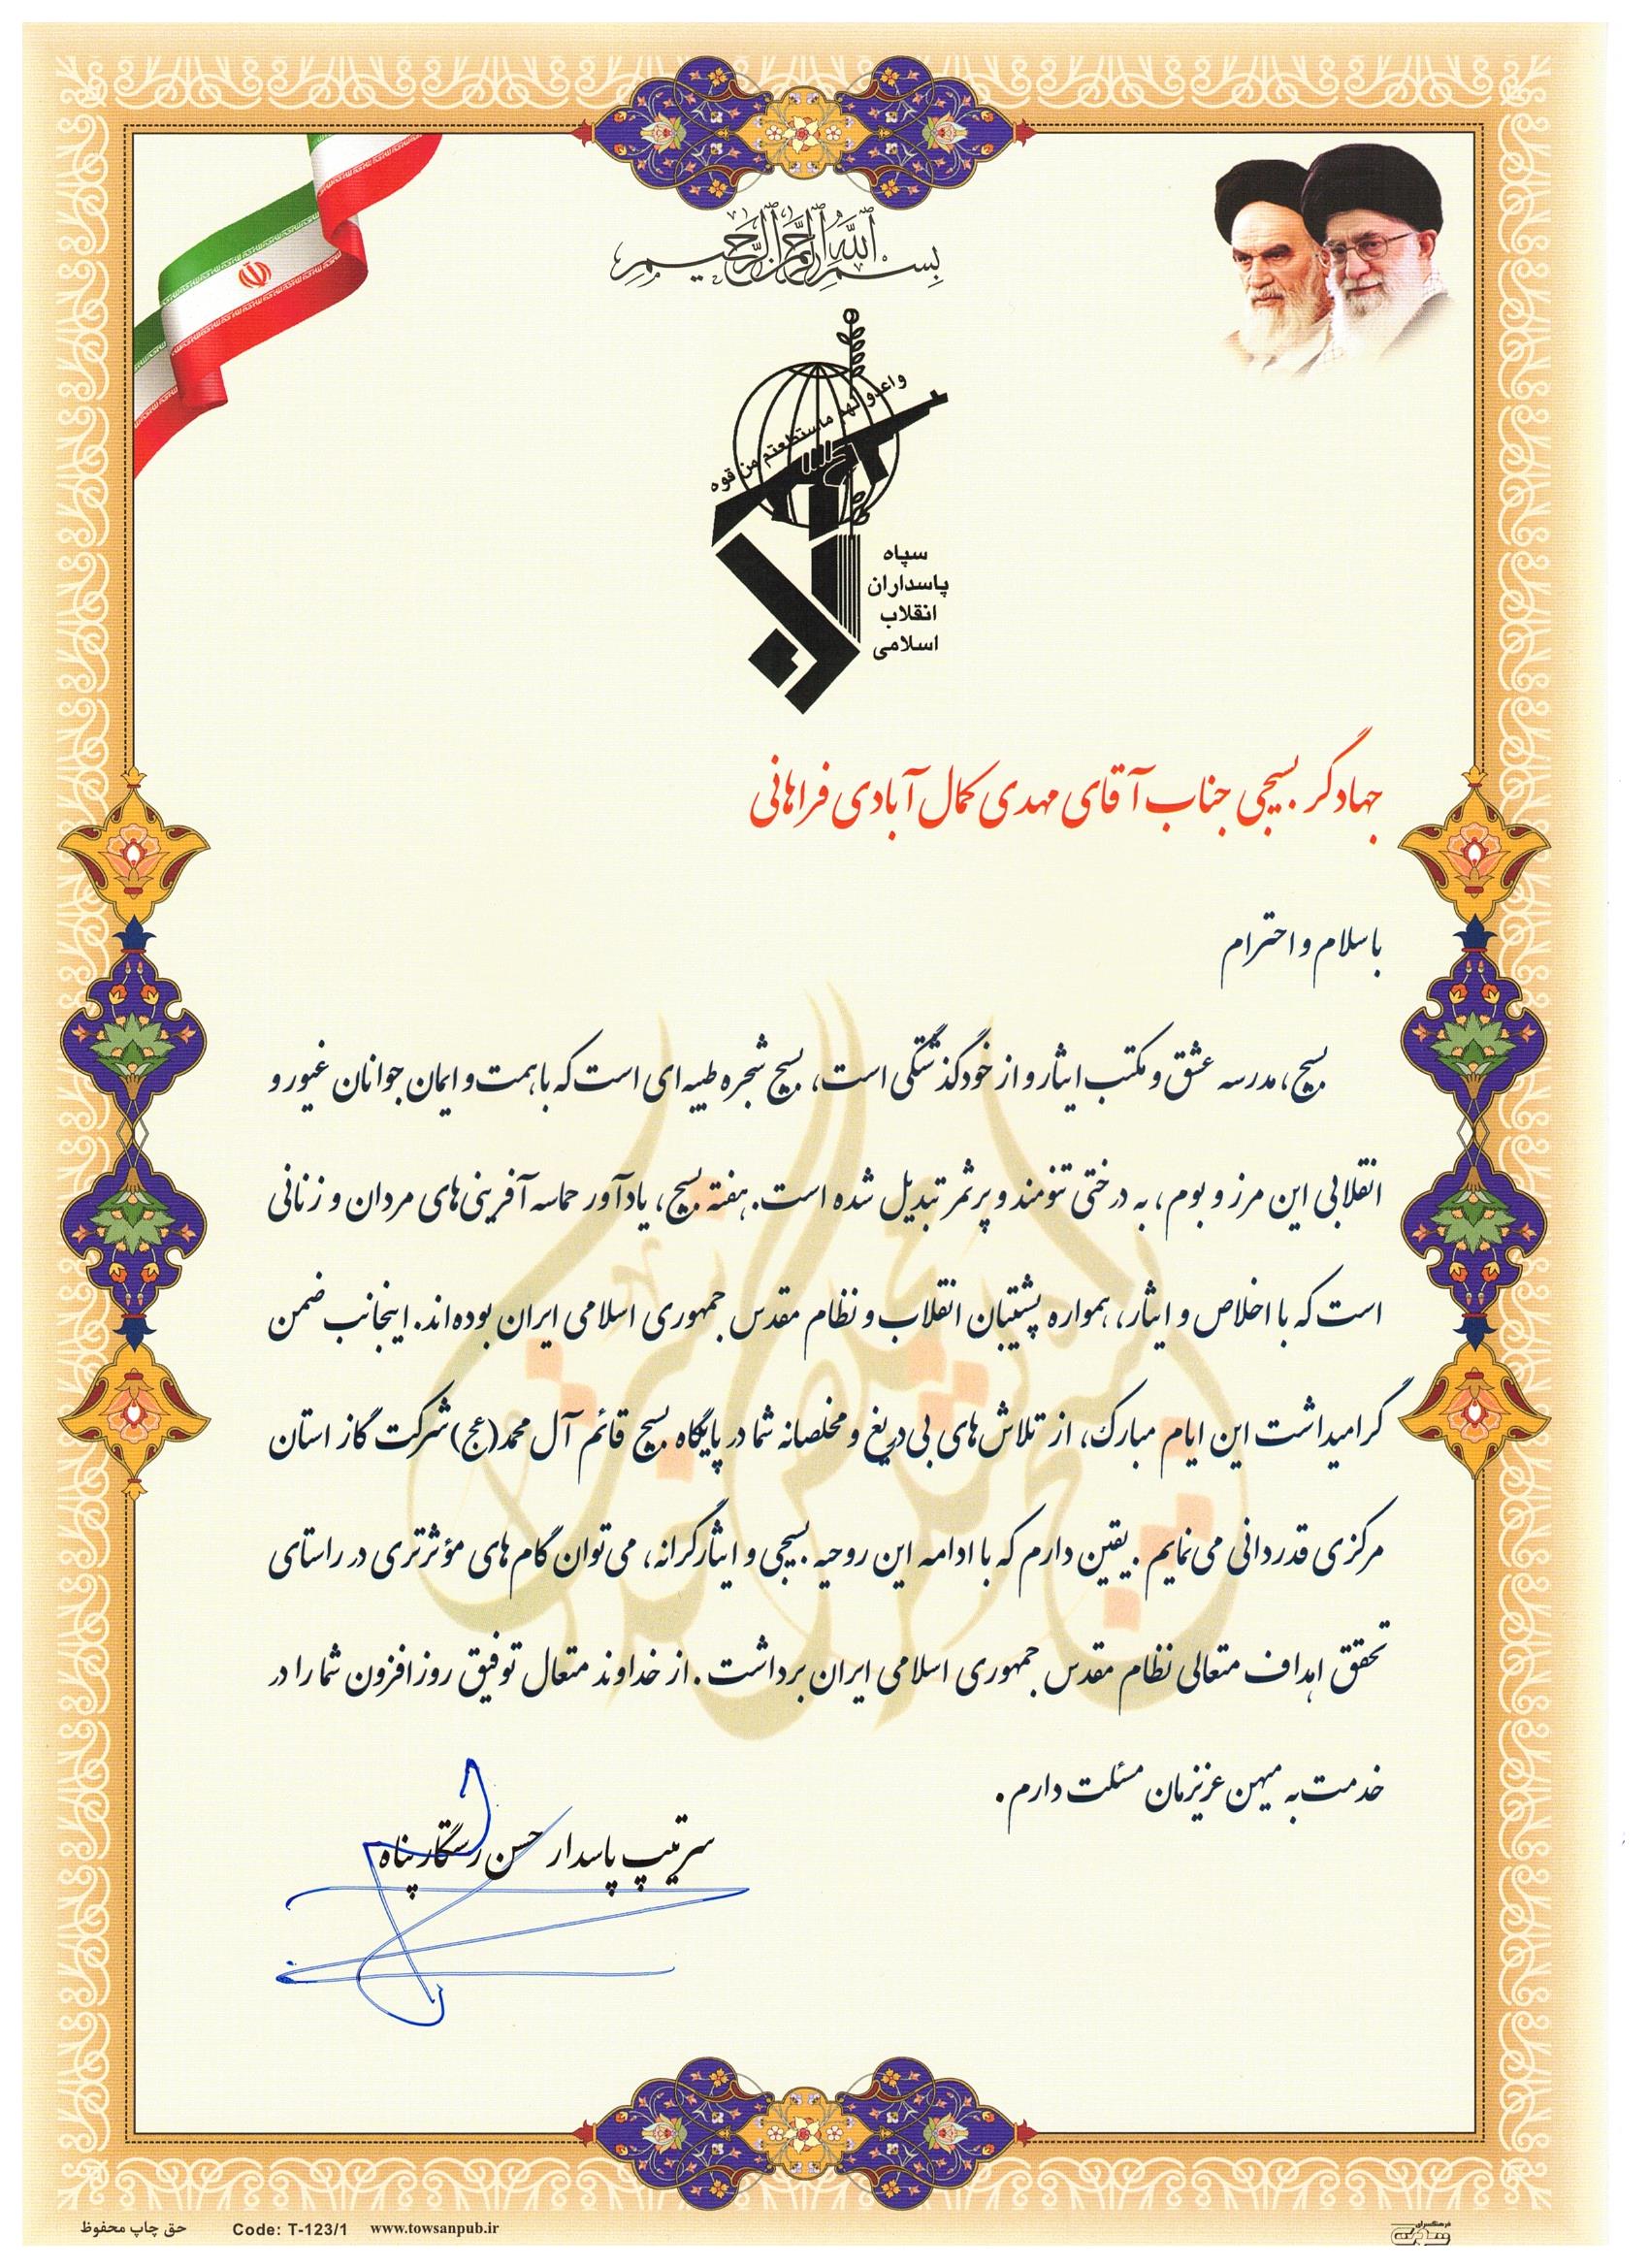 بسم الله الرحمن الرحیم
واعدوا لهم ما استطعتم من قوه
سپاه
پاسداران
انقلاب
اسلامی
جهادگر بسیجی جناب آقای مهدی کمال آبادی فراهانی
با سلام و احترام
بسیج، مدرسه عشق و مکتب ایثار و از خودگذشتگی است، بسیج شجره طیبه‌ای است که با همت و ایمان جوانان غیور و
انقلابی این مرز و بوم، به درختی تنومند و پرثمر تبدیل شده است. هفته بسیج، یادآور حماسه آفرینی‌های مردان و زنانی
است که با اخلاص و ایثار، همواره پشتیبان انقلاب و نظام مقدس جمهوری اسلامی ایران بوده‌اند. اینجانب ضمن
گرامیداشت این ایام مبارک، از تلاش‌های بی‌دریغ و مخلصانه شما در پایگاه بسیج قائم آل محمد(عج) شرکت گاز استان
مرکزی قدردانی می‌نمایم. یقین دارم که با ادامه این روحیه بسیجی و ایثارگرانه، می‌توان گام‌های مؤثرتری در راستای
تحقق اهداف متعالی نظام مقدس جمهوری اسلامی ایران برداشت. از خداوند متعال توفیق روزافزون شما را در
خدمت به میهن عزیزمان مسئلت دارم.
سرتیپ پاسدار حسن رستگارپناه
حق چاپ محفوظ Code: T-123/1 www.towsanpub.ir
فرهنگسرای